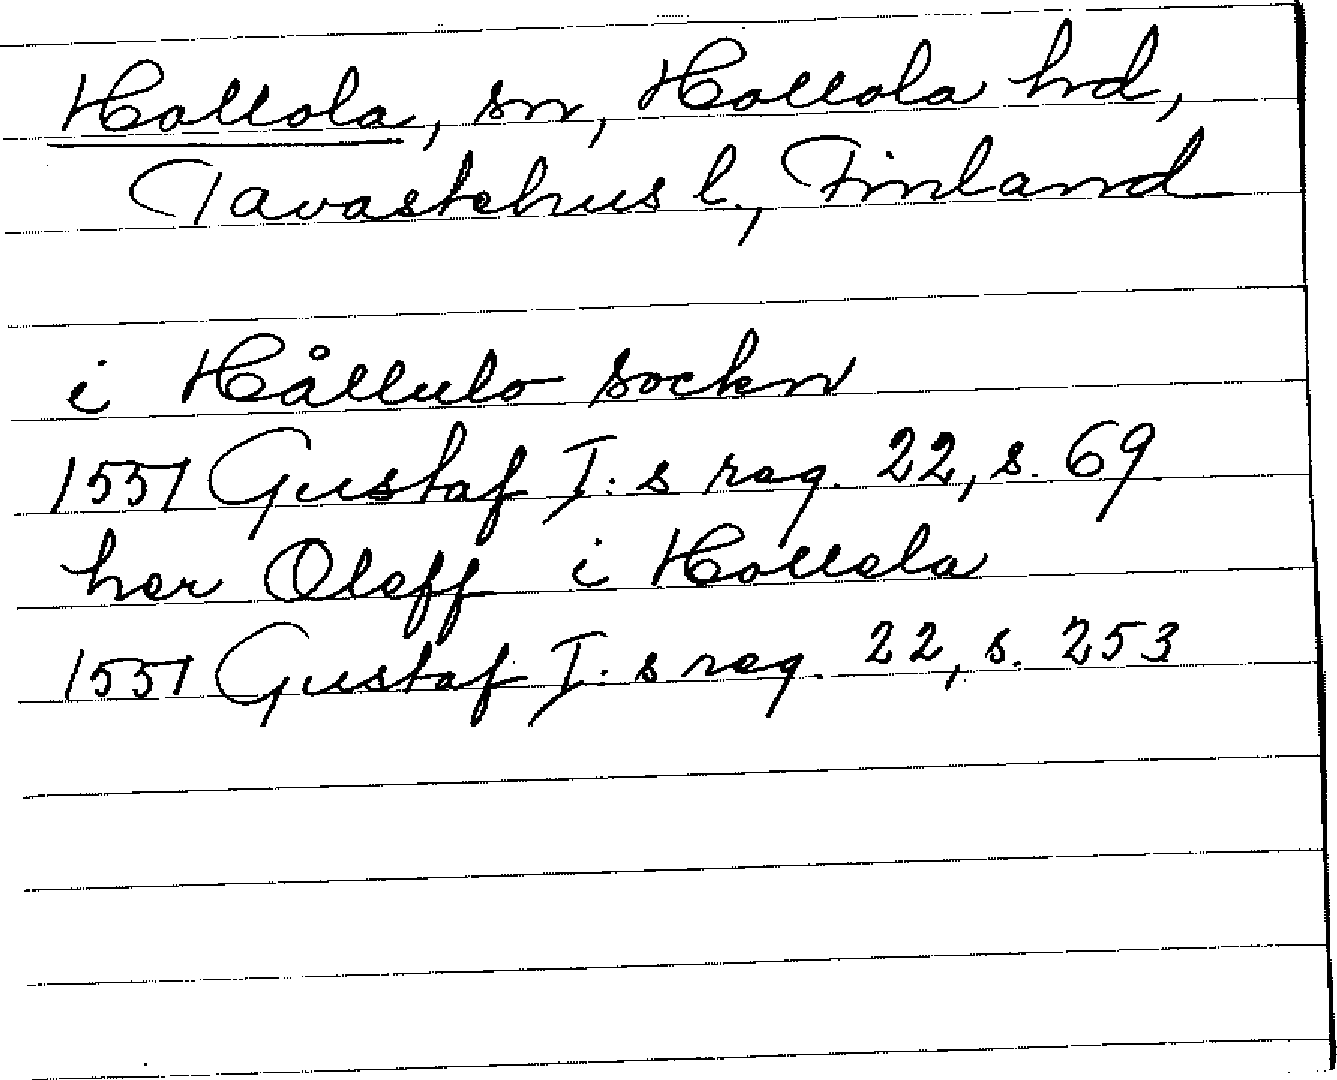 Hollola, sn, Hollola hd,
Tavastehus l., Finland
i Hållulo sockn
1551 Gustaf I:s reg. 22, s. 69
her Oleff i Hollola
1551 Gustaf I:s reg. 22, s. 253